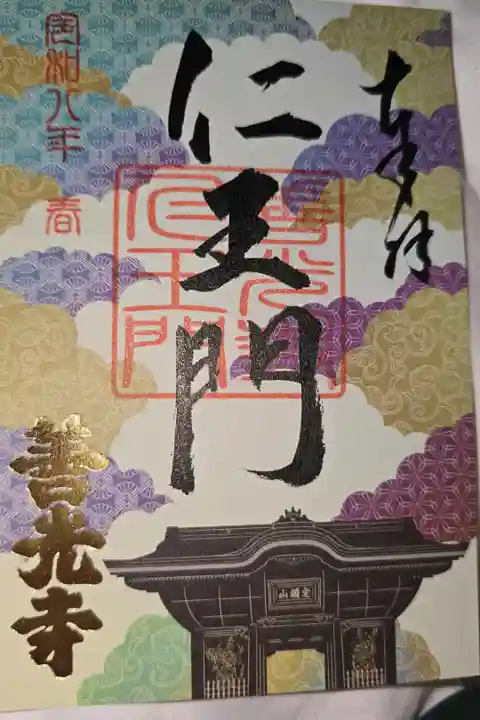 奉拝
仁王門
善光寺
仁王門
令和八年 春
善光寺
定額山